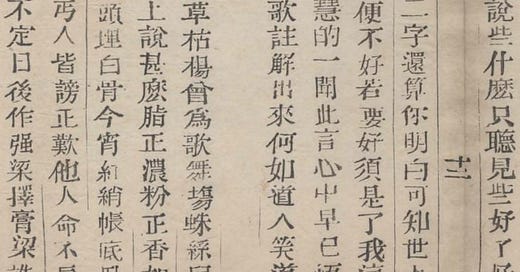 說些什麽只聽見些好了
十二
二字還算你明白可知世上
便不好若要好須是了我這
慧的一聞此言心中早已悟
歌註解出來何如道人笑道
草枯楊曾爲歌舞塲蛛絲
上說甚麽脂正濃粉正香如
頭埋白骨今宵紅綃帳底
丐人皆謗正歎他人命不長
不定日後作强梁擇膏粱誰